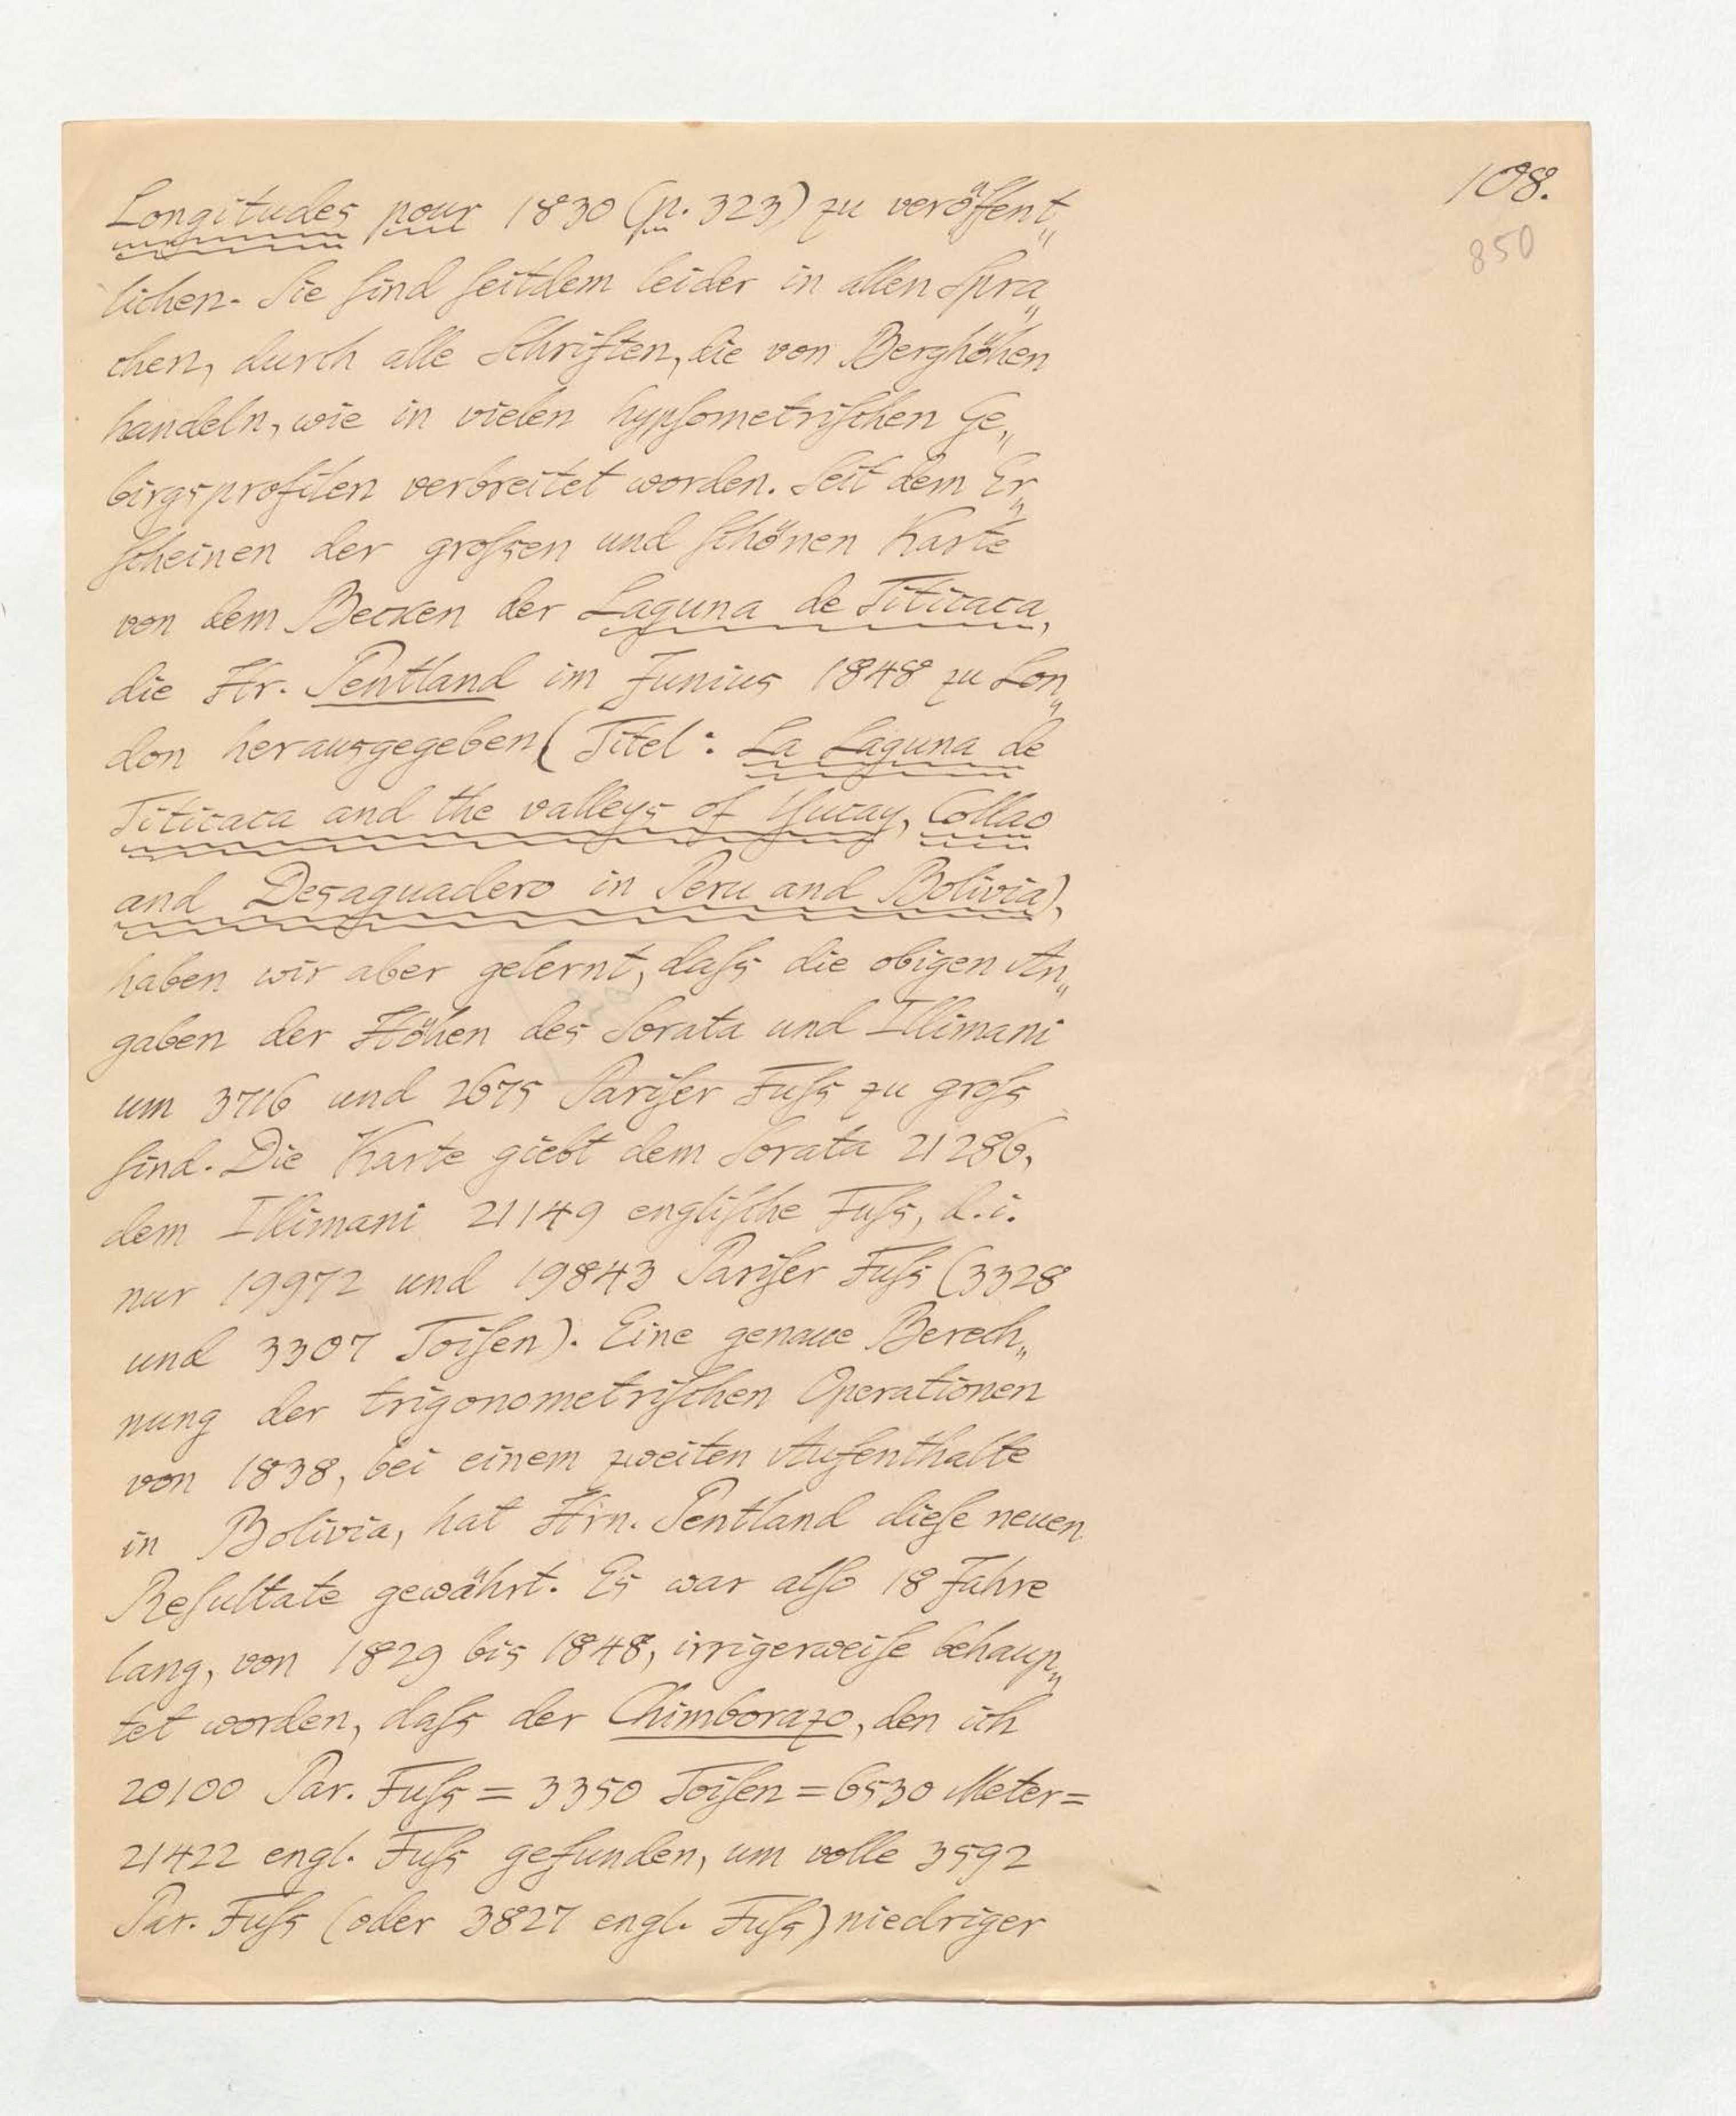 108.
850
Longitudes pour 1830 (p. 323) zu veröffent„
lichen. Sie ſind ſeitdem leider in allen Spra„
chen, durch alle Schriften, die von Berghöhen
handeln, wie in vielen hypſometriſchen Ge„
birgsprofilen verbreitet worden. Seit dem Er„
ſcheinen der groſsen und ſchönen Karte
von dem Becken der Laguna de Titicaca,
die Hr. Pentland im Junius 1848 zu Lon„
don herausgegeben (Titel: La Laguna de
Titicaca and the valleys of Yucay, Collao
and Desaguadero in Peru and Bolivia),
haben wir aber gelernt, daſs die obigen An„
gaben der Höhen des Sorata und Illimani
um 3716 und 2675 Pariſer Fuſs zu groſs
ſind. Die Karte giebt dem Sorata 21286,
dem Illimani 21149 engliſche Fuſs, d. i.
nur 19972 und 19843 Pariſer Fuſs (3328
und 3307 Toiſen). Eine genaue Berech„
nung der trigonometriſchen Operationen
von 1838, bei einem zweiten Aufenthalte
in Bolivia, hat Hrn. Pentland dieſe neuen
Reſultate gewährt. Es war alſo 18 Jahre
lang, von 1829 bis 1848, irrigerweiſe behaup„
tet worden, daſs der Chimborazo, den ich
20100 Par. Fuſs = 3350 Toiſen = 6530 Meter =
21422 engl. Fuſs gefunden, um volle 3592
Par. Fuſs (oder 3827 engl. Fuſs) niedriger